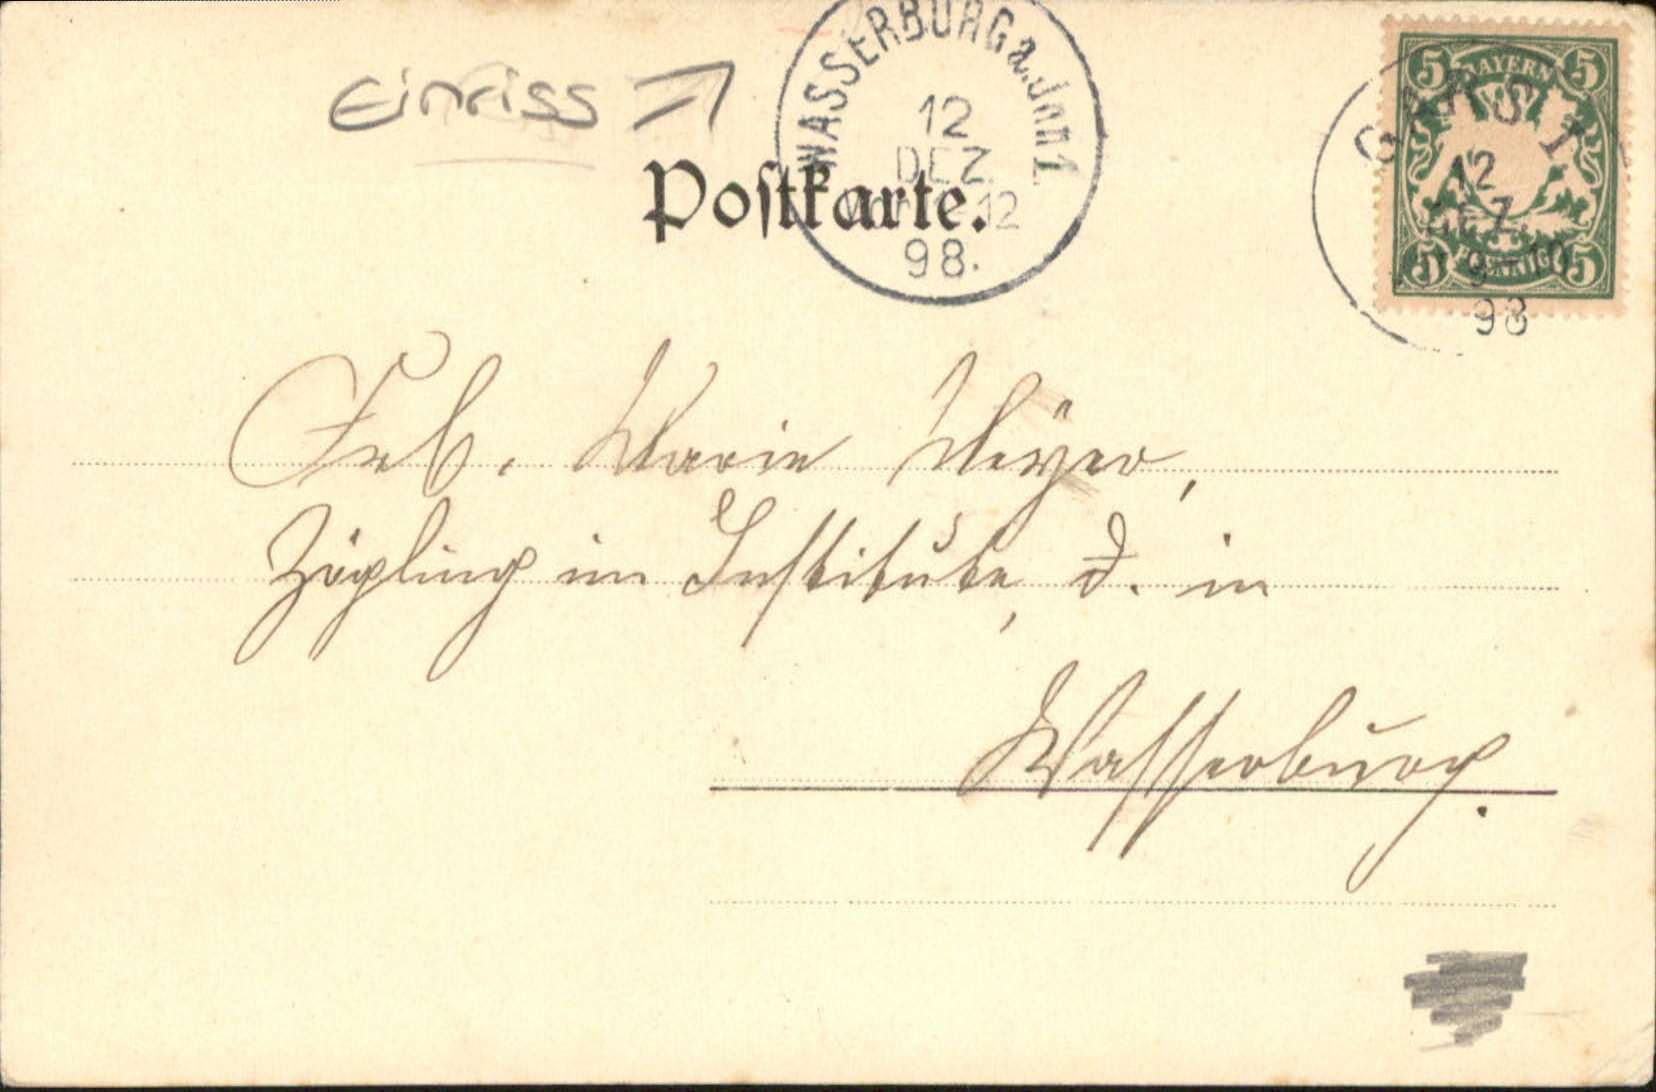 Einriss
WASSERBURG a. Inn 1.
12
DEZ.
Vorm. 12
98.
Postkarte.
BAYERN
5 5
5 5
PFENNIG
12
DEZ.
9-10
98
Frl. Marie Meyer,
Zögling im Institute, d. in
Wasserburg.